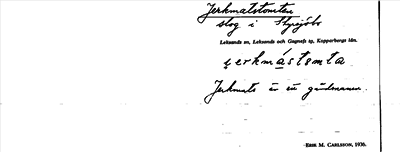 Jerkmatstomten
skog i Styrsjöbo
Leksands sn, Leksands och Gagnefs tg, Kopparbergs län.
Jerkmats är ett gårdnamn.
ERIK M. CARLSSON, 1936.